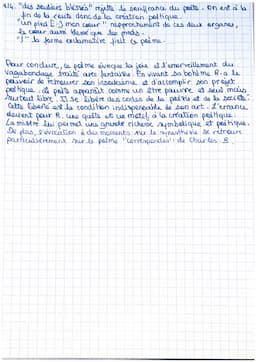 v.14. "des souliers blessés" rejette la souffrance du poète. On est à la
fin de la route donc de la création poétique.
"un pied [...] mon cœur" rapprochement de ces deux organes,
le cœur aussi blessé que les pieds.
"!" la forme exclamative finit ce poème.
Pour conclure, ce poème évoque la joie et l'émerveillement du
vagabondage traité avec fantaisie. En vivant sa bohème R. a le
pouvoir de retrouver son insouciance et d'accomplir son projet
poétique. Le poète apparaît comme un être pauvre et seul mais
surtout libre. Il se libère des codes de la poésie et de la société.
Cette liberté est la condition indispensable de son art. L'errance
devient pour R. une quête et un motif à la création poétique.
La misère lui permet une grande richesse symbolique et poétique.
De plus, l'évocation à des moments sur la synesthésie se retrouve
particulièrement sur le poème "correspondances" de Charles B.